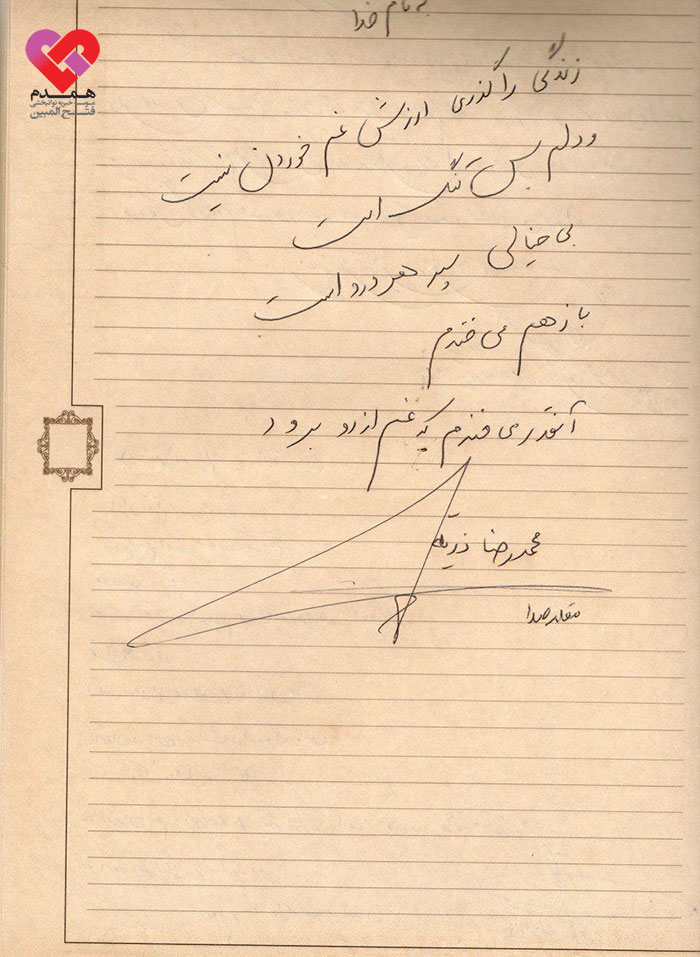 به نام خدا
همدم
موسسه خیریه توانبخشی
فتح المبین
زندگی را گذری ارزش غم خوردن نیست
و دلم بس تنگ است
بی خیالی سپر هر درد است
باز هم می خندم
آنقدر می خندم که غم از رو برود
محمدرضا
مقلد صدا